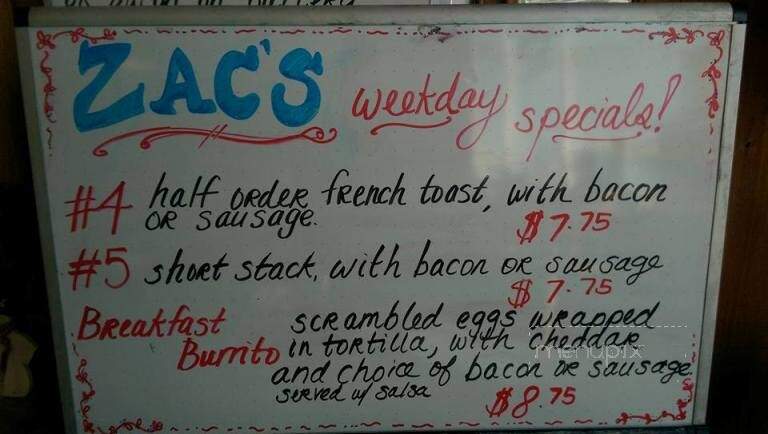 ZAC'S weekday specials!
#4 half order french toast, with bacon
or sausage.
$7.75
#5 short stack, with bacon or sausage
$7.75
Breakfast scrambled eggs wrapped
Burrito in tortilla, with cheddar
and choice of bacon or sausage
served w/ salsa
$8.75
menupix